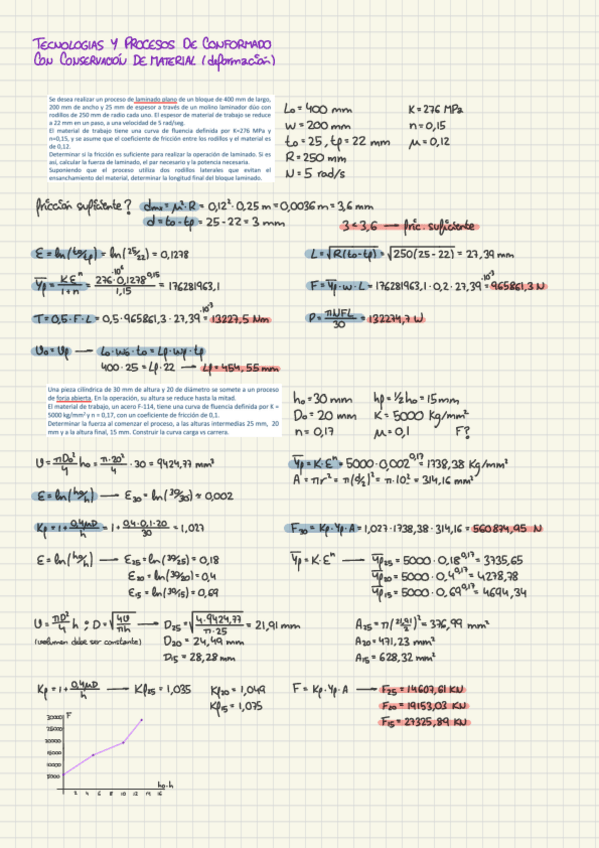 TECNOLOGIAS Y PROCESOS DE CONFORMADO
CON CONSERVACIÓN DE MATERIAL (deformación)
Se desea realizar un proceso de laminado plano de un bloque de 400 mm de largo,
200 mm de ancho y 25 mm de espesor a través de un molino laminador dúo con
rodillos de 250 mm de radio cada uno. El espesor de material de trabajo se reduce
a 22 mm en un paso, a una velocidad de 5 rad/seg.
El material de trabajo tiene una curva de fluencia definida por K=276 MPa y
n=0,15, y se asume que el coeficiente de fricción entre los rodillos y el material es
de 0,12.
Determinar si la fricción es suficiente para realizar la operación de laminado. Si es
así, calcular la fuerza de laminado, el par necesario y la potencia necesaria.
Suponiendo que el proceso utiliza dos rodillos laterales que evitan el
ensanchamiento del material, determinar la longitud final del bloque laminado.
Lo = 400 mm K = 276 MPa
W = 200 mm n = 0,15
to = 25, tp = 22 mm μ = 0,12
R = 250 mm
N = 5 rad/s
fricción suficiente? dmx = μ²·R = 0,12²·0,25 m = 0,0036 m = 3,6 mm
d = to - tp = 25 - 22 = 3 mm 3 < 3,6 → fric. suficiente
ε = ln(to/tp) = ln(25/22) = 0,1278 L = √R(to-tp) = √250(25-22) = 27,39 mm
Yp = K·εⁿ/1+n = 276·10⁶·0,1278^0,15/1,15 = 176281963,1 F = Yp·w·L = 176281963,1·0,2·27,39·10⁻³ = 965861,3 N
T = 0,5·F·L = 0,5·965861,3·27,39·10⁻³ = 13227,5 Nm P = πNFL/30 = 132274,7 W
Vo = Vp → Lo·Wo·to = Lp·Wp·tp
400·25 = Lp·22 → Lp = 454,55 mm
Una pieza cilíndrica de 30 mm de altura y 20 de diámetro se somete a un proceso
de forja abierta. En la operación, su altura se reduce hasta la mitad.
El material de trabajo, un acero F-114, tiene una curva de fluencia definida por K =
5000 kg/mm² y n = 0,17, con un coeficiente de fricción de 0,1.
Determinar la fuerza al comenzar el proceso, a las alturas intermedias 25 mm, 20
mm y a la altura final, 15 mm. Construir la curva carga vs carrera.
ho = 30 mm hp = ½ ho = 15 mm
Do = 20 mm K = 5000 Kg/mm²
n = 0,17 μ = 0,1 F?
V = πDo²/4 ho = π·20²/4 · 30 = 9424,77 mm³ Yp = K·εⁿ = 5000·0,002^0,17 = 1738,38 Kg/mm²
A = πr² = π(d/2)² = π·10² = 314,16 mm²
ε = ln(ho/h) → ε30 = ln(30/30) ≈ 0,002
Kp = 1 + 0,4μD/h = 1 + 0,4·0,1·20/30 = 1,027 F30 = Kp·Yp·A = 1,027·1738,38·314,16 = 560874,95 N
ε = ln(ho/h) → ε25 = ln(30/25) = 0,18 Yp = K·εⁿ → Yp25 = 5000·0,18^0,17 = 3735,65
ε20 = ln(30/20) = 0,4 Yp20 = 5000·0,4^0,17 = 4278,78
ε15 = ln(30/15) = 0,69 Yp15 = 5000·0,69^0,17 = 4694,34
V = πD²/4 h ; D = √4V/πh → D25 = √4·9424,77/π·25 = 21,91 mm A25 = π(21,91/2)² = 376,99 mm²
(volumen debe ser constante) D20 = 24,49 mm A20 = 471,23 mm²
D15 = 28,28 mm A15 = 628,32 mm²
Kp = 1 + 0,4μD/h → Kp25 = 1,035 Kp20 = 1,049 F = Kp·Yp·A → F25 = 14607,61 KN
Kp15 = 1,075 F20 = 19153,03 KN
F15 = 27325,89 KN
F
30000
25000
20000
15000
10000
5000
2 4 6 8 10 12 14 16
ho-h